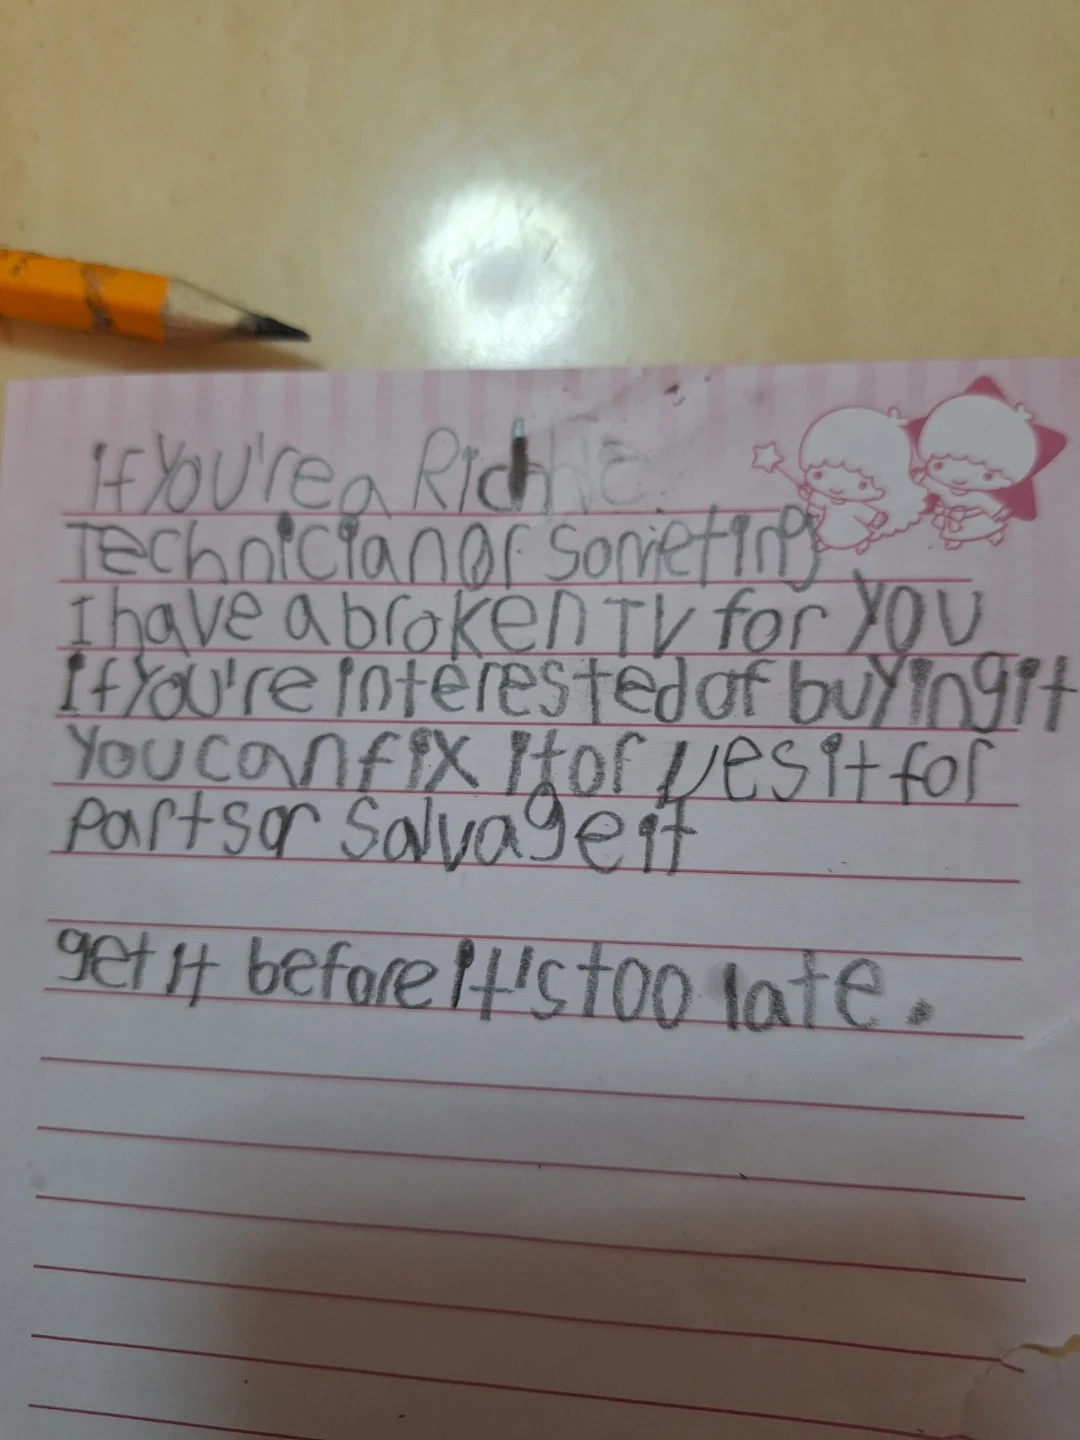 If You're a Rich
Technician or someting
I have a broken TV for YOU
If You're interested of buying it
You can fix it or ues it for
parts or Salvage it
get it before It's too late.